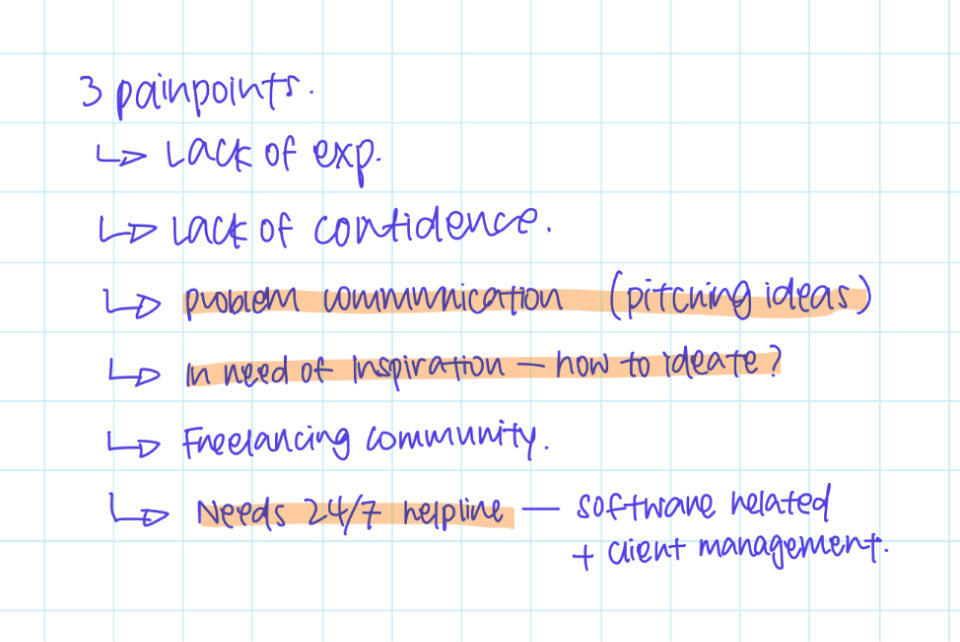 3 painpoints.
↳ Lack of exp.
↳ Lack of confidence.
↳ problem communication (pitching ideas)
↳ In need of inspiration – how to ideate?
↳ Freelancing community.
↳ Needs 24/7 helpline – software related
+ client management.